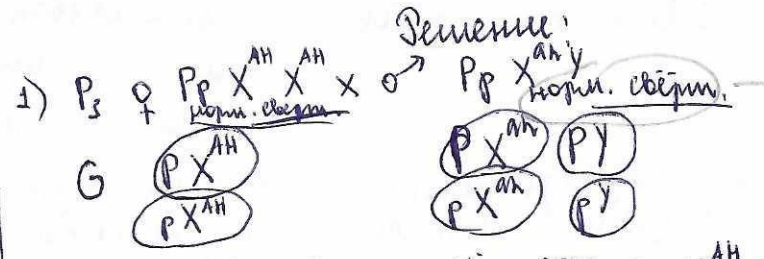 Решение:
1) P₃ ♀ Pp X^AH X^AH x ♂ Pp X^ah Y
норм. сверт. норм. свёрт.
G P X^AH P X^ah PY
p X^AH p X^ah pY
AH